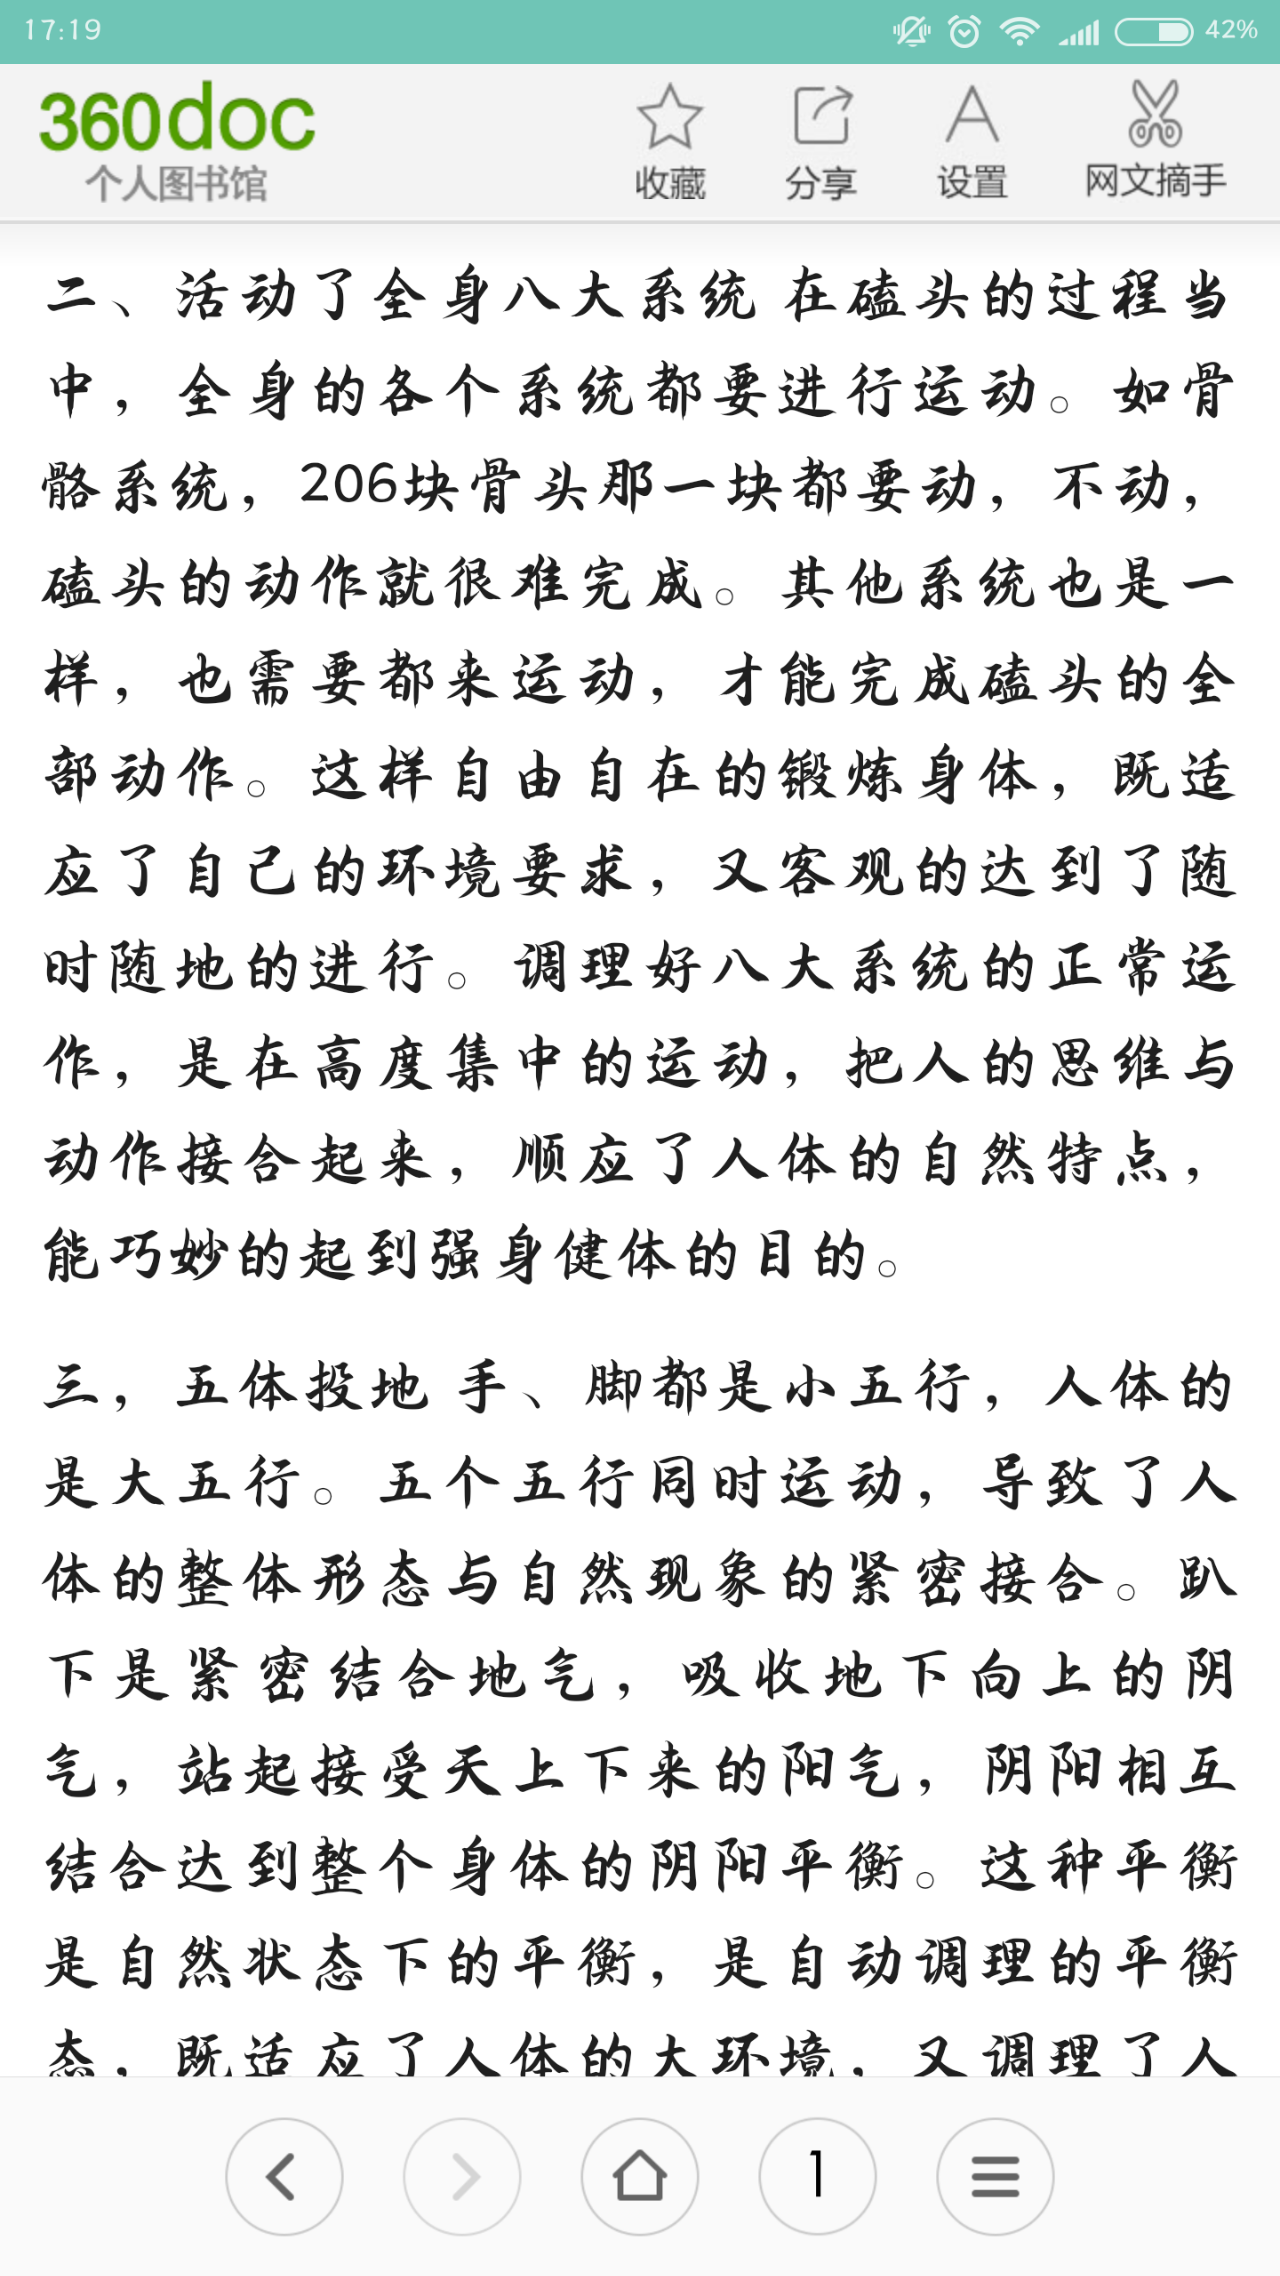 17:19
42%
360doc
个人图书馆
收藏
分享
设置
网文摘手
二、活动了全身八大系统 在磕头的过程当
中，全身的各个系统都要进行运动。如骨
骼系统，206块骨头那一块都要动，不动，
磕头的动作就很难完成。其他系统也是一
样，也需要都来运动，才能完成磕头的全
部动作。这样自由自在的锻炼身体，既适
应了自己的环境要求，又客观的达到了随
时随地的进行。调理好八大系统的正常运
作，是在高度集中的运动，把人的思维与
动作接合起来，顺应了人体的自然特点，
能巧妙的起到强身健体的目的。
三，五体投地 手、脚都是小五行，人体的
是大五行。五个五行同时运动，导致了人
体的整体形态与自然现象的紧密接合。趴
下是紧密结合地气，吸收地下向上的阴
气，站起接受天上下来的阳气，阴阳相互
结合达到整个身体的阴阳平衡。这种平衡
是自然状态下的平衡，是自动调理的平衡
态，既适应了人体的大环境，又调理了人
1